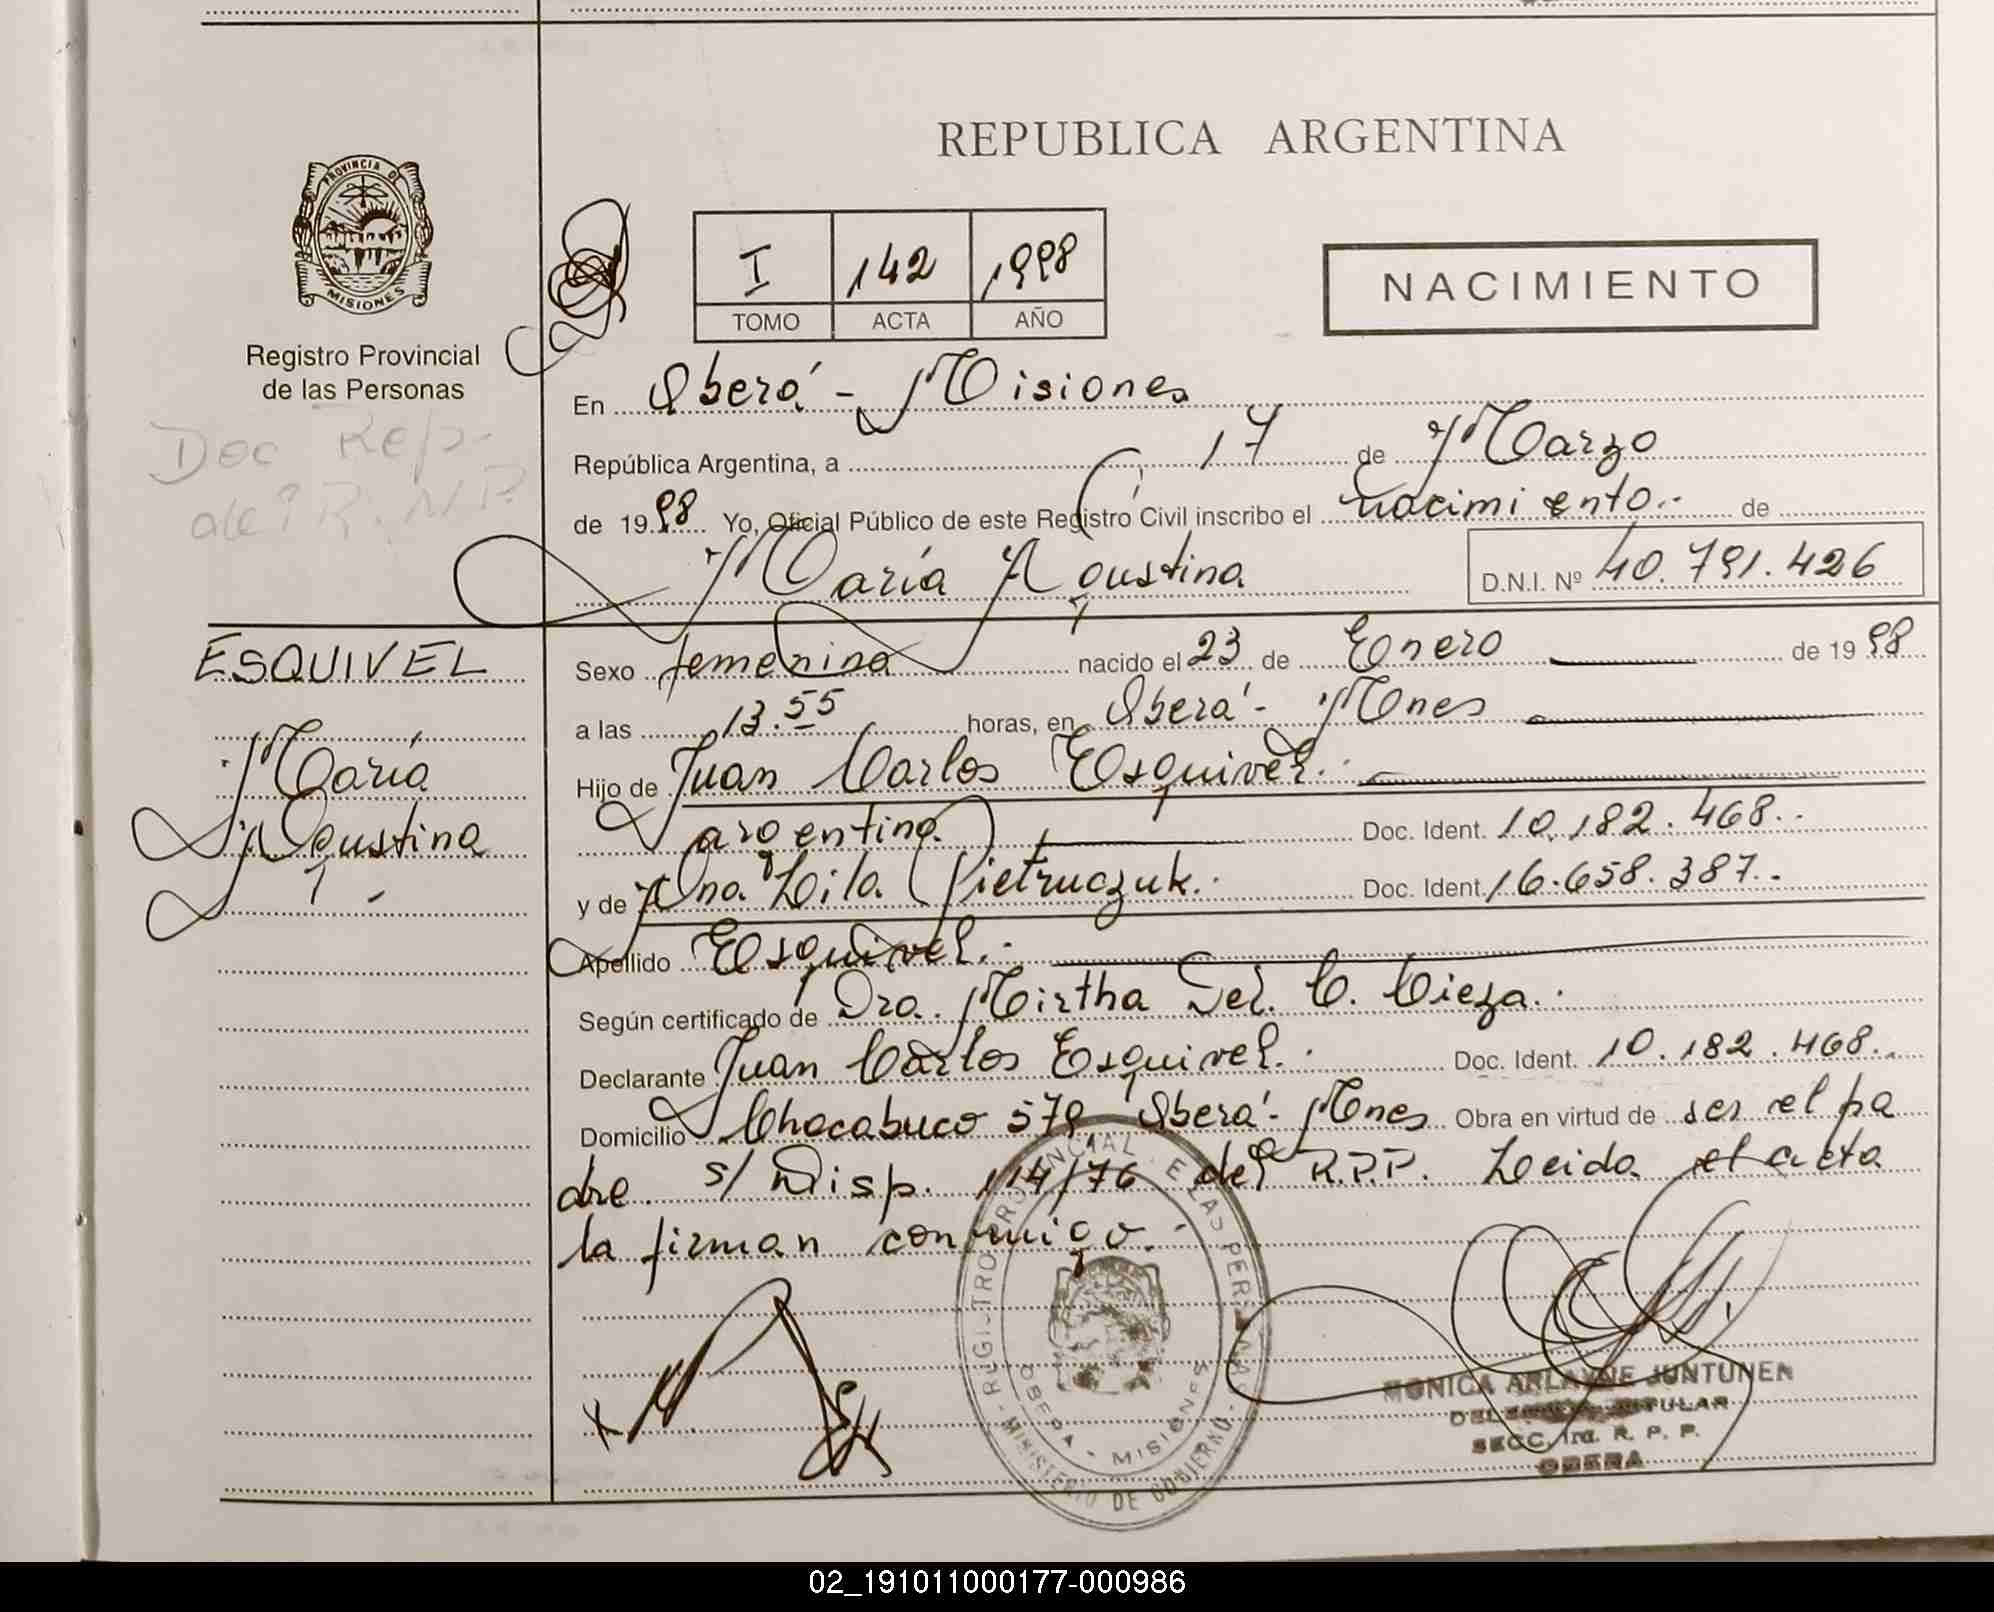 REPUBLICA ARGENTINA
PROVINCIA DE
MISIONES
Registro Provincial
de las Personas
Doc Rep.
del R.N.P.
I 142 1998
TOMO ACTA AÑO
NACIMIENTO
En Oberá - Misiones
República Argentina, a 17 de Marzo
de 1998 Yo, Oficial Público de este Registro Civil inscribo el nacimiento.- de
María Agustina D.N.I. Nº 40.791.426
ESQUIVEL
María
Agustina
Sexo femenino nacido el 23 de Enero de 1998
a las 13.55 horas, en Oberá - Mnes
Hijo de Juan Carlos Esquivel.-
argentino Doc. Ident. 10.182.468.-
y de Ana Lila Pietruczuk.- Doc. Ident. 16.658.387.-
Apellido Esquivel.-
Según certificado de Dra. Mirtha Del C. Cieza.-
Declarante Juan Carlos Esquivel.- Doc. Ident. 10.182.468.-
Domicilio Chacabuco 579 Oberá - Mnes Obra en virtud de ser el pa
dre s/ Disp. 114/76 del R.P.P. Leida el acta
la firman conmigo.-
REGISTRO PROVINCIAL DE LAS PERSONAS
OBERA - MISIONES
- MINISTERIO DE GOBIERNO -
MONICA ARLAYNE JUNTUNEN
DELEGADA TITULAR
SECC. 1ra. R. P. P.
OBERA
02_191011000177-000986